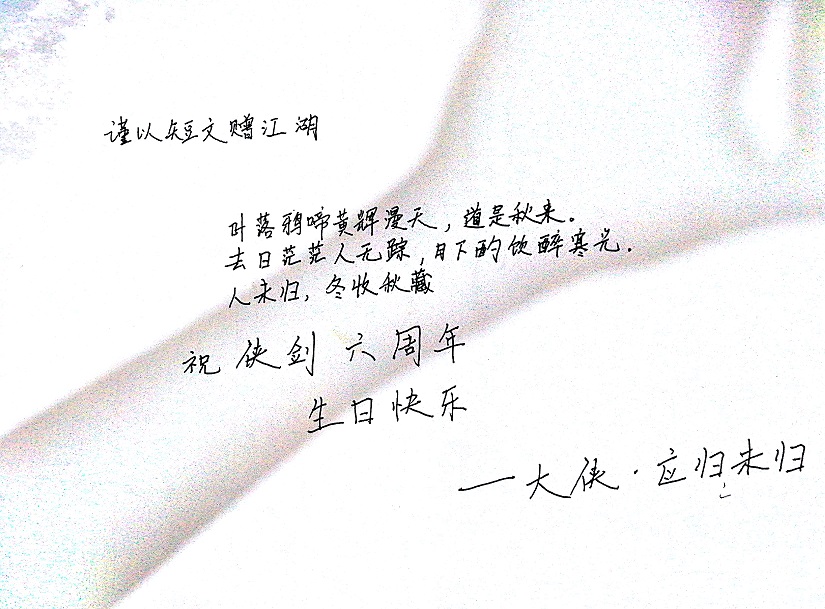 谨以短文赠江湖
叶落鸦啼黄辉漫天，道是秋来。
去日茫茫人无踪，月下酌饮醉寒光.
人未归，冬收秋藏
祝侠剑六周年
生日快乐
一大侠·应归未归